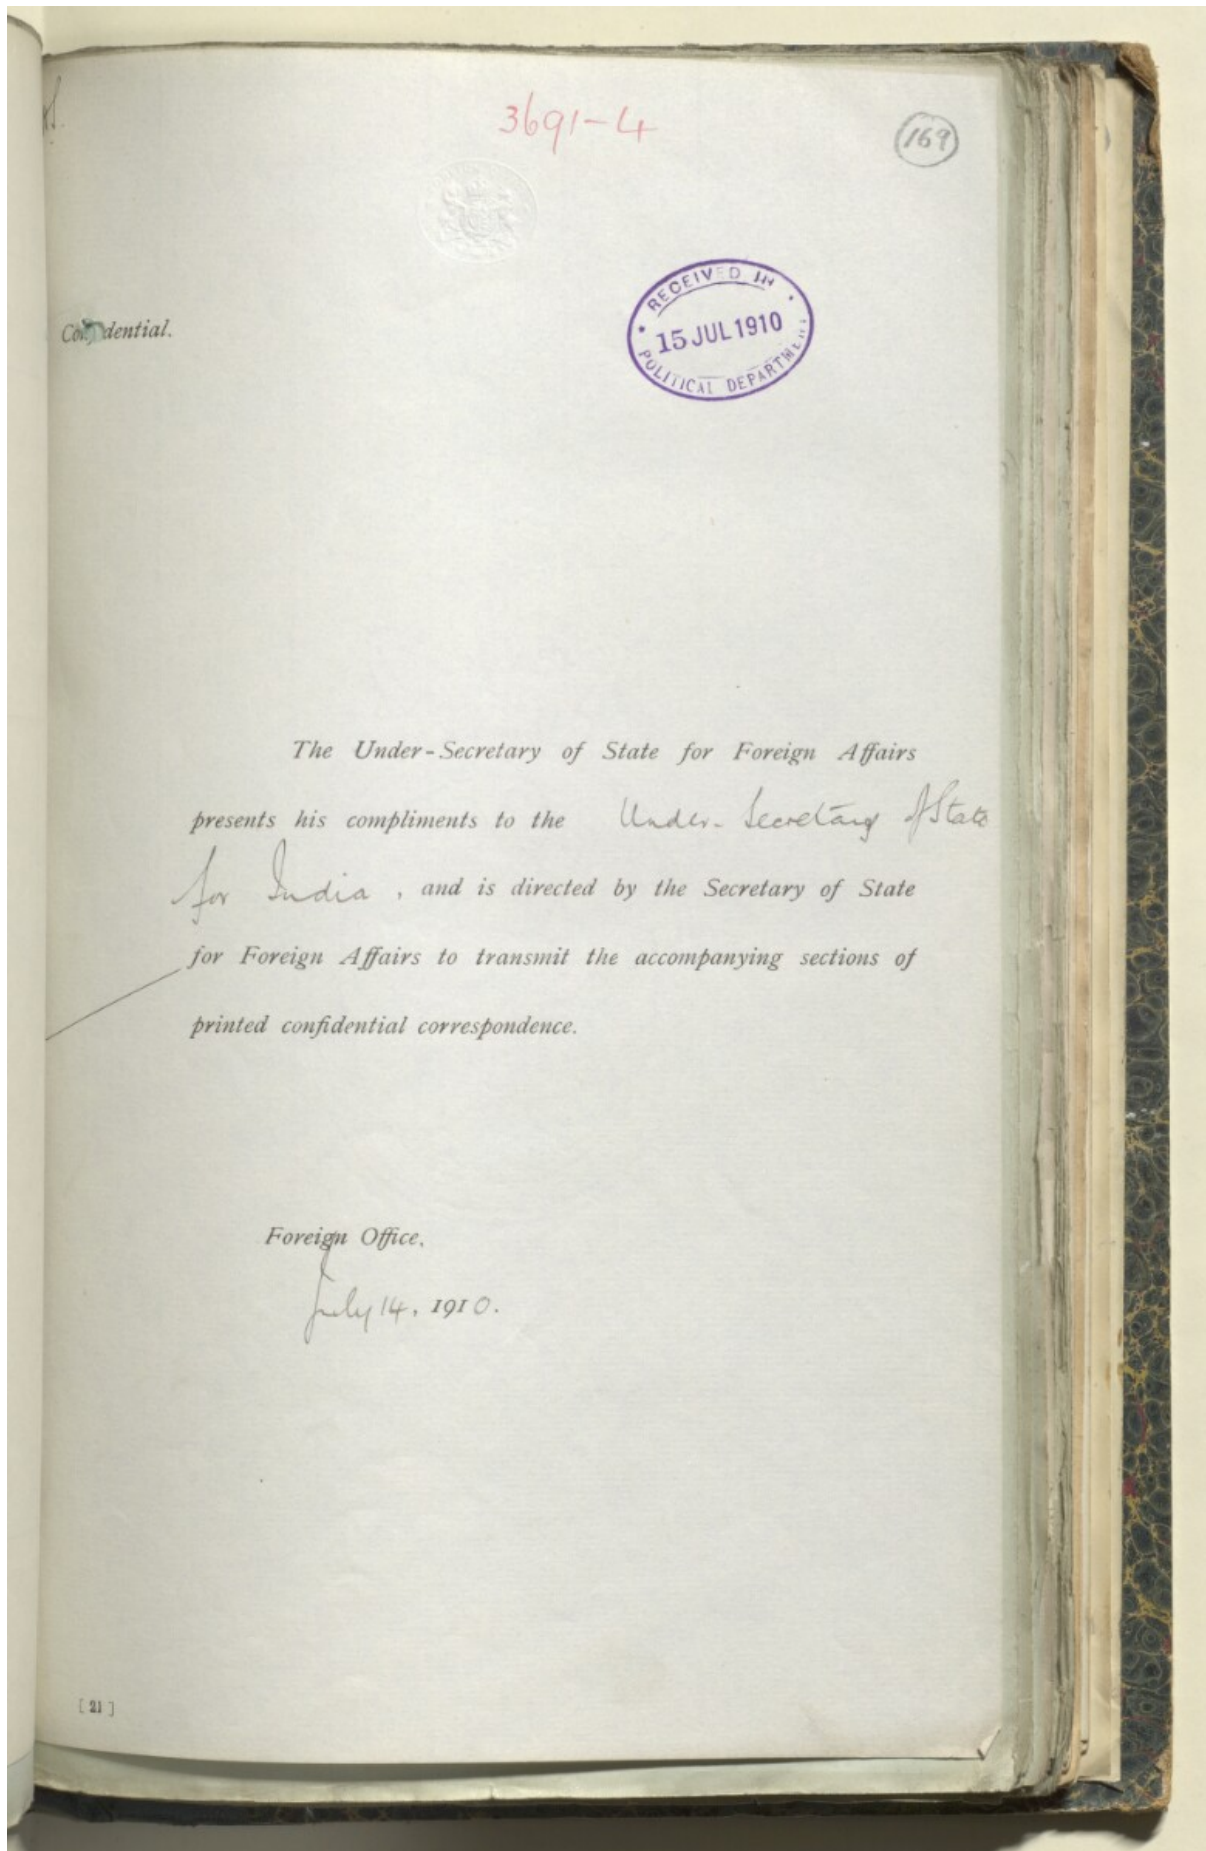 3691-4
169
RECEIVED IN
15 JUL 1910
POLITICAL DEPARTMENT
Confidential.
The Under-Secretary of State for Foreign Affairs
presents his compliments to the Under-Secretary of State
for India, and is directed by the Secretary of State
for Foreign Affairs to transmit the accompanying sections of
printed confidential correspondence.
Foreign Office,
July 14, 1910.
[21]